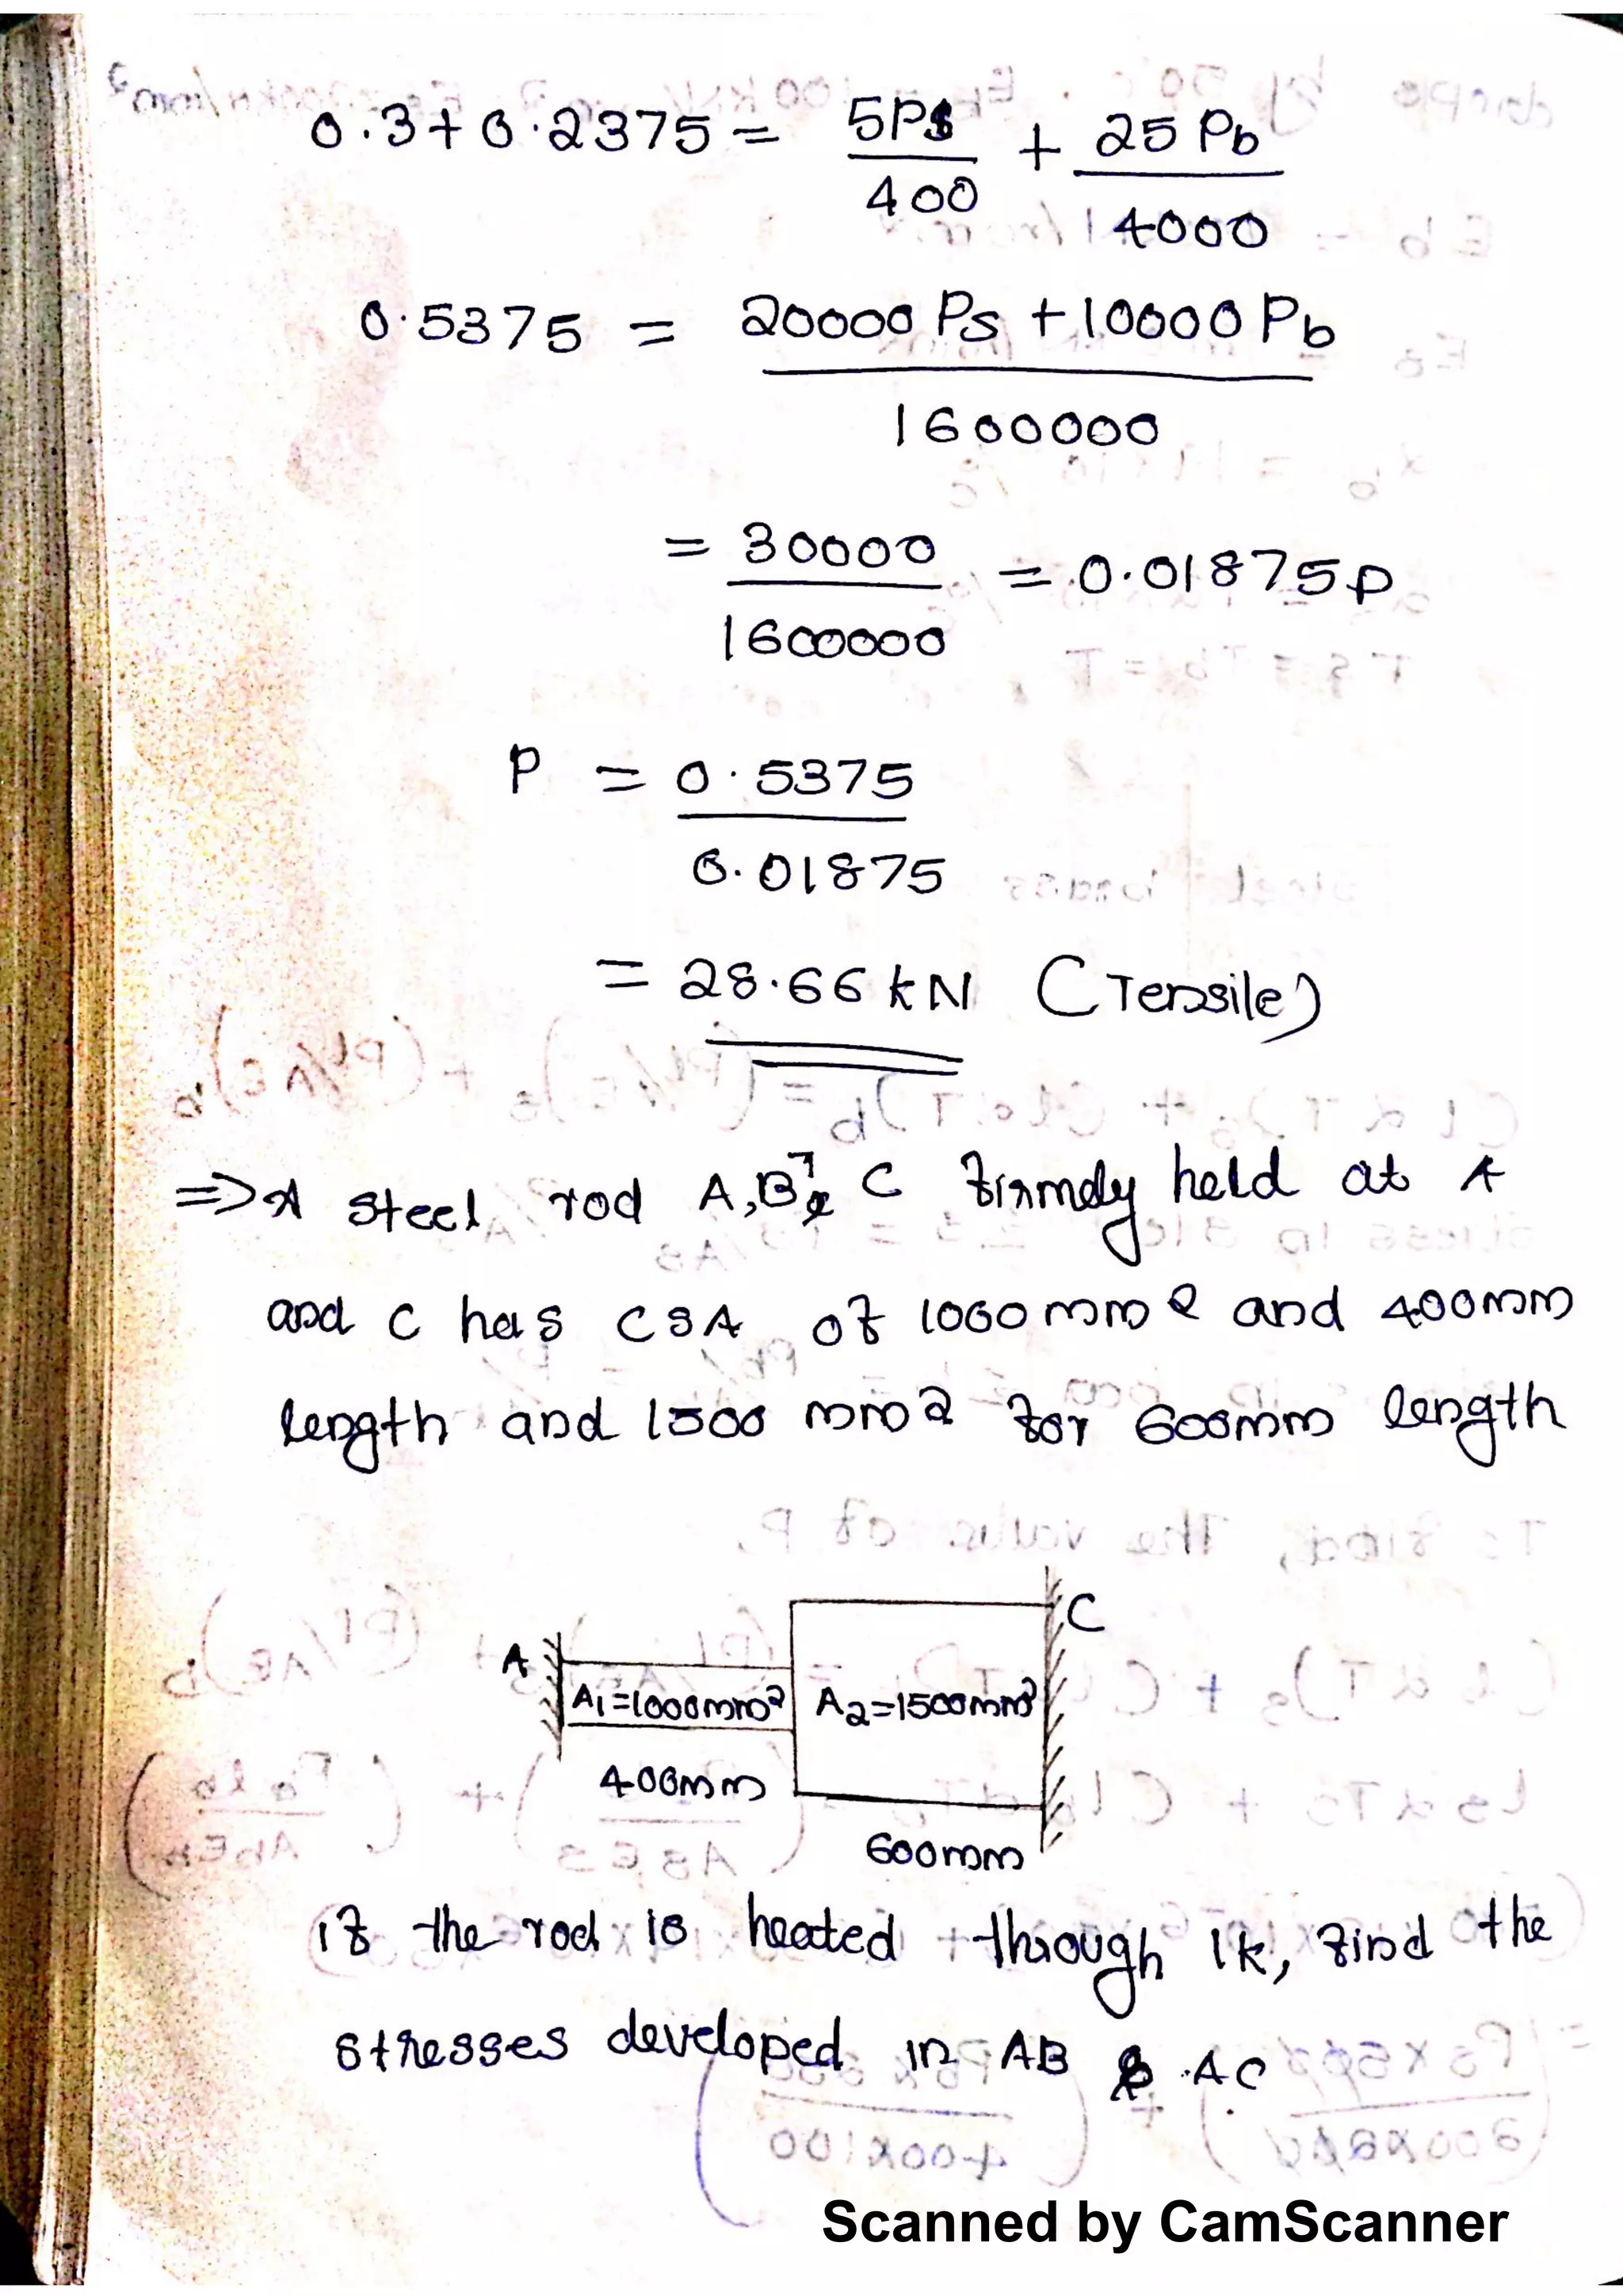 0.3+0.2375 = 5Ps/400 + 25 Pb/4000
0.5375 = 20000 Ps + 10000 Pb/1600000
= 30000/1600000 = 0.01875p
P = 0.5375/0.01875
= 28.66 kN (Tensile)
=> A steel rod A,B, & C firmly held at A
and C has CSA of 1000 mm2 and 400mm
length and 1500 mm2 for 600mm length
A
C
A1=1000mm2
A2=1500mm2
400mm
600mm
if the rod is heated through 1k, find the
stresses developed in AB & AC
Scanned by CamScanner